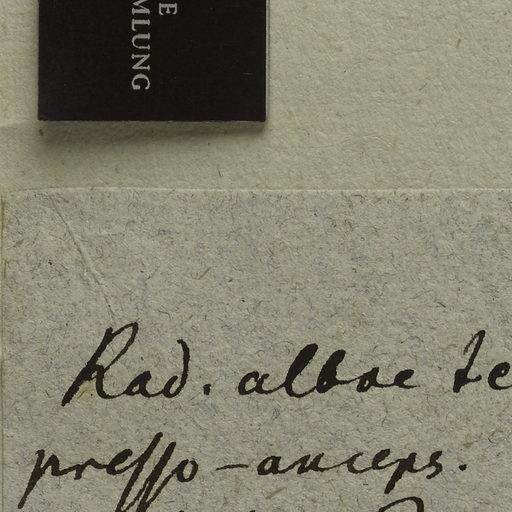 E
MLUNG
Rad. albae te
presso-anceps.